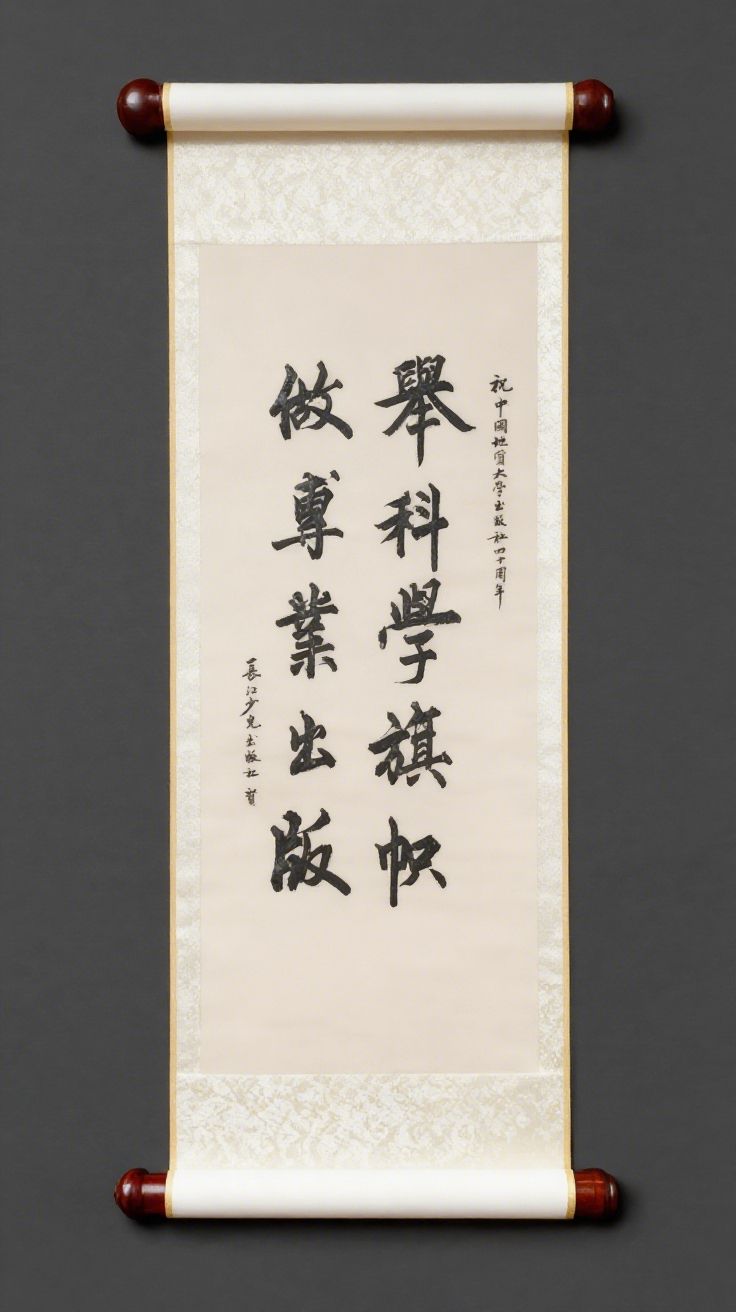 祝中國地質大學出版社四十周年
舉科學旗帜
做專業出版
長江少兒出版社 賀